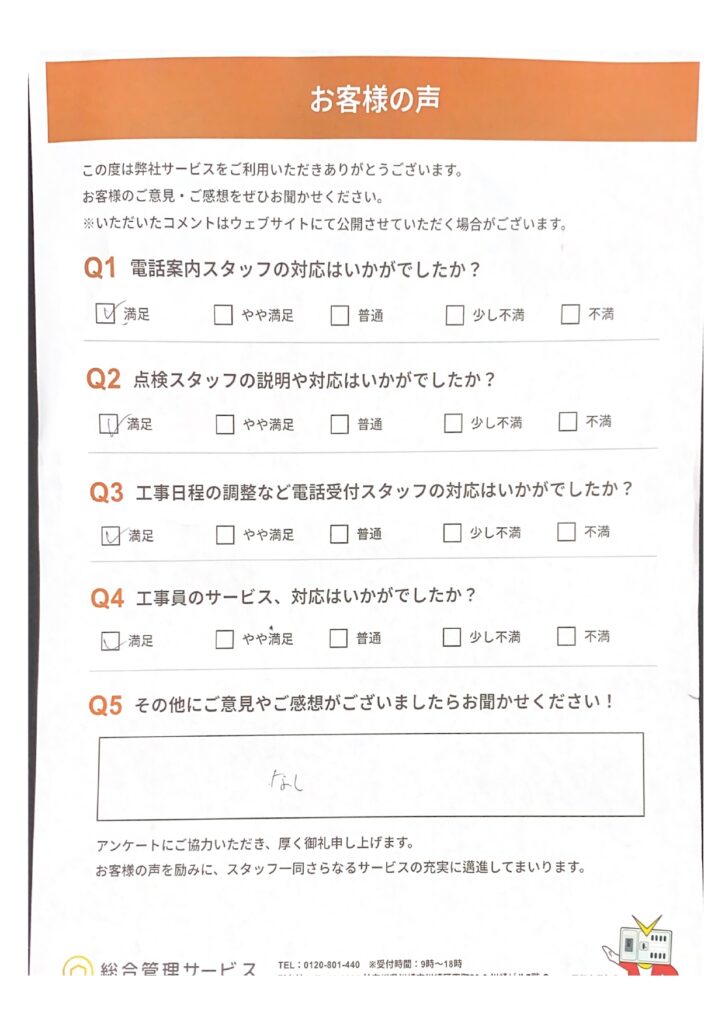 お客様の声
この度は弊社サービスをご利用いただきありがとうございます。
お客様のご意見・ご感想をぜひお聞かせください。
※いただいたコメントはウェブサイトにて公開させていただく場合がございます。
Q1 電話案内スタッフの対応はいかがでしたか？
満足 やや満足 普通 少し不満 不満
Q2 点検スタッフの説明や対応はいかがでしたか？
満足 やや満足 普通 少し不満 不満
Q3 工事日程の調整など電話受付スタッフの対応はいかがでしたか？
満足 やや満足 普通 少し不満 不満
Q4 工事員のサービス、対応はいかがでしたか？
満足 やや満足 普通 少し不満 不満
Q5 その他にご意見やご感想がございましたらお聞かせください！
なし
アンケートにご協力いただき、厚く御礼申し上げます。
お客様の声を励みに、スタッフ一同さらなるサービスの充実に邁進してまいります。
総合管理サービス
TEL：0120-801-440 ※受付時間：9時〜18時